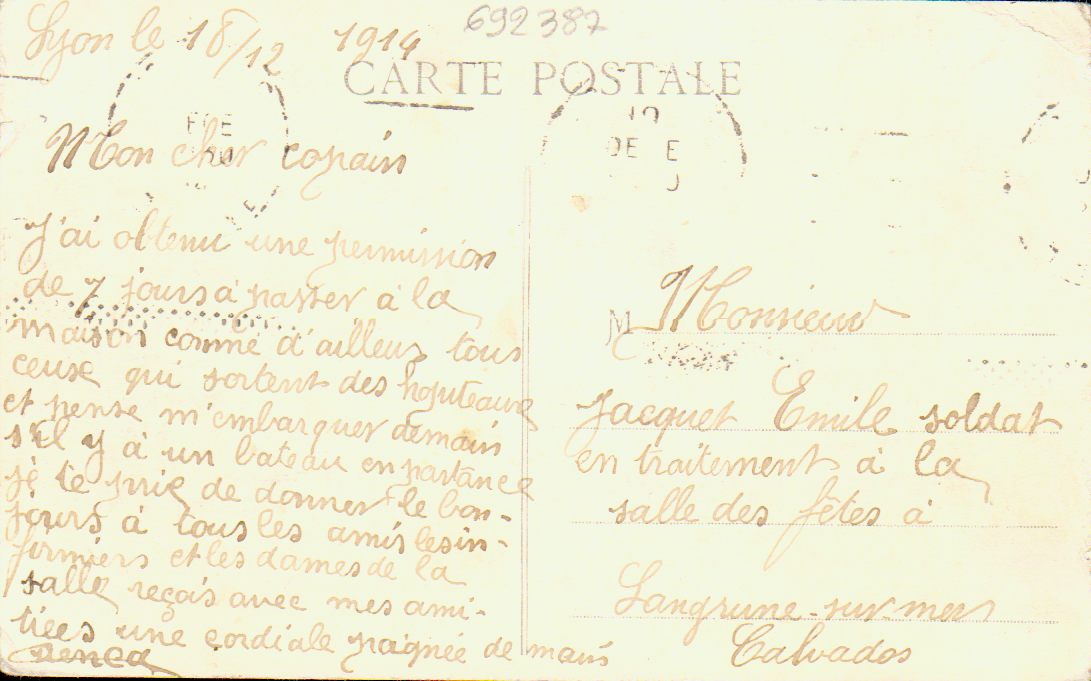 692387
Lyon le 18/12 1914
CARTE POSTALE
Mon cher copain
J'ai obtenu une permission
de 7 jours à passer à la
maison comme d'ailleur tous
ceuse qui sortent des hoputeause
et pense m'embarquer demain
s'il y à un bateau en partance
je te prie de donner le bon-
jours à tous les amis les in-
firmiers et les dames de la
salle reçois avec mes ami-
tiées une cordiale paignée de mains
M Monsieur
Jacquet Emile soldat
en traitement à la
salle des fêtes à
Langrune-sur-mer
Calvados